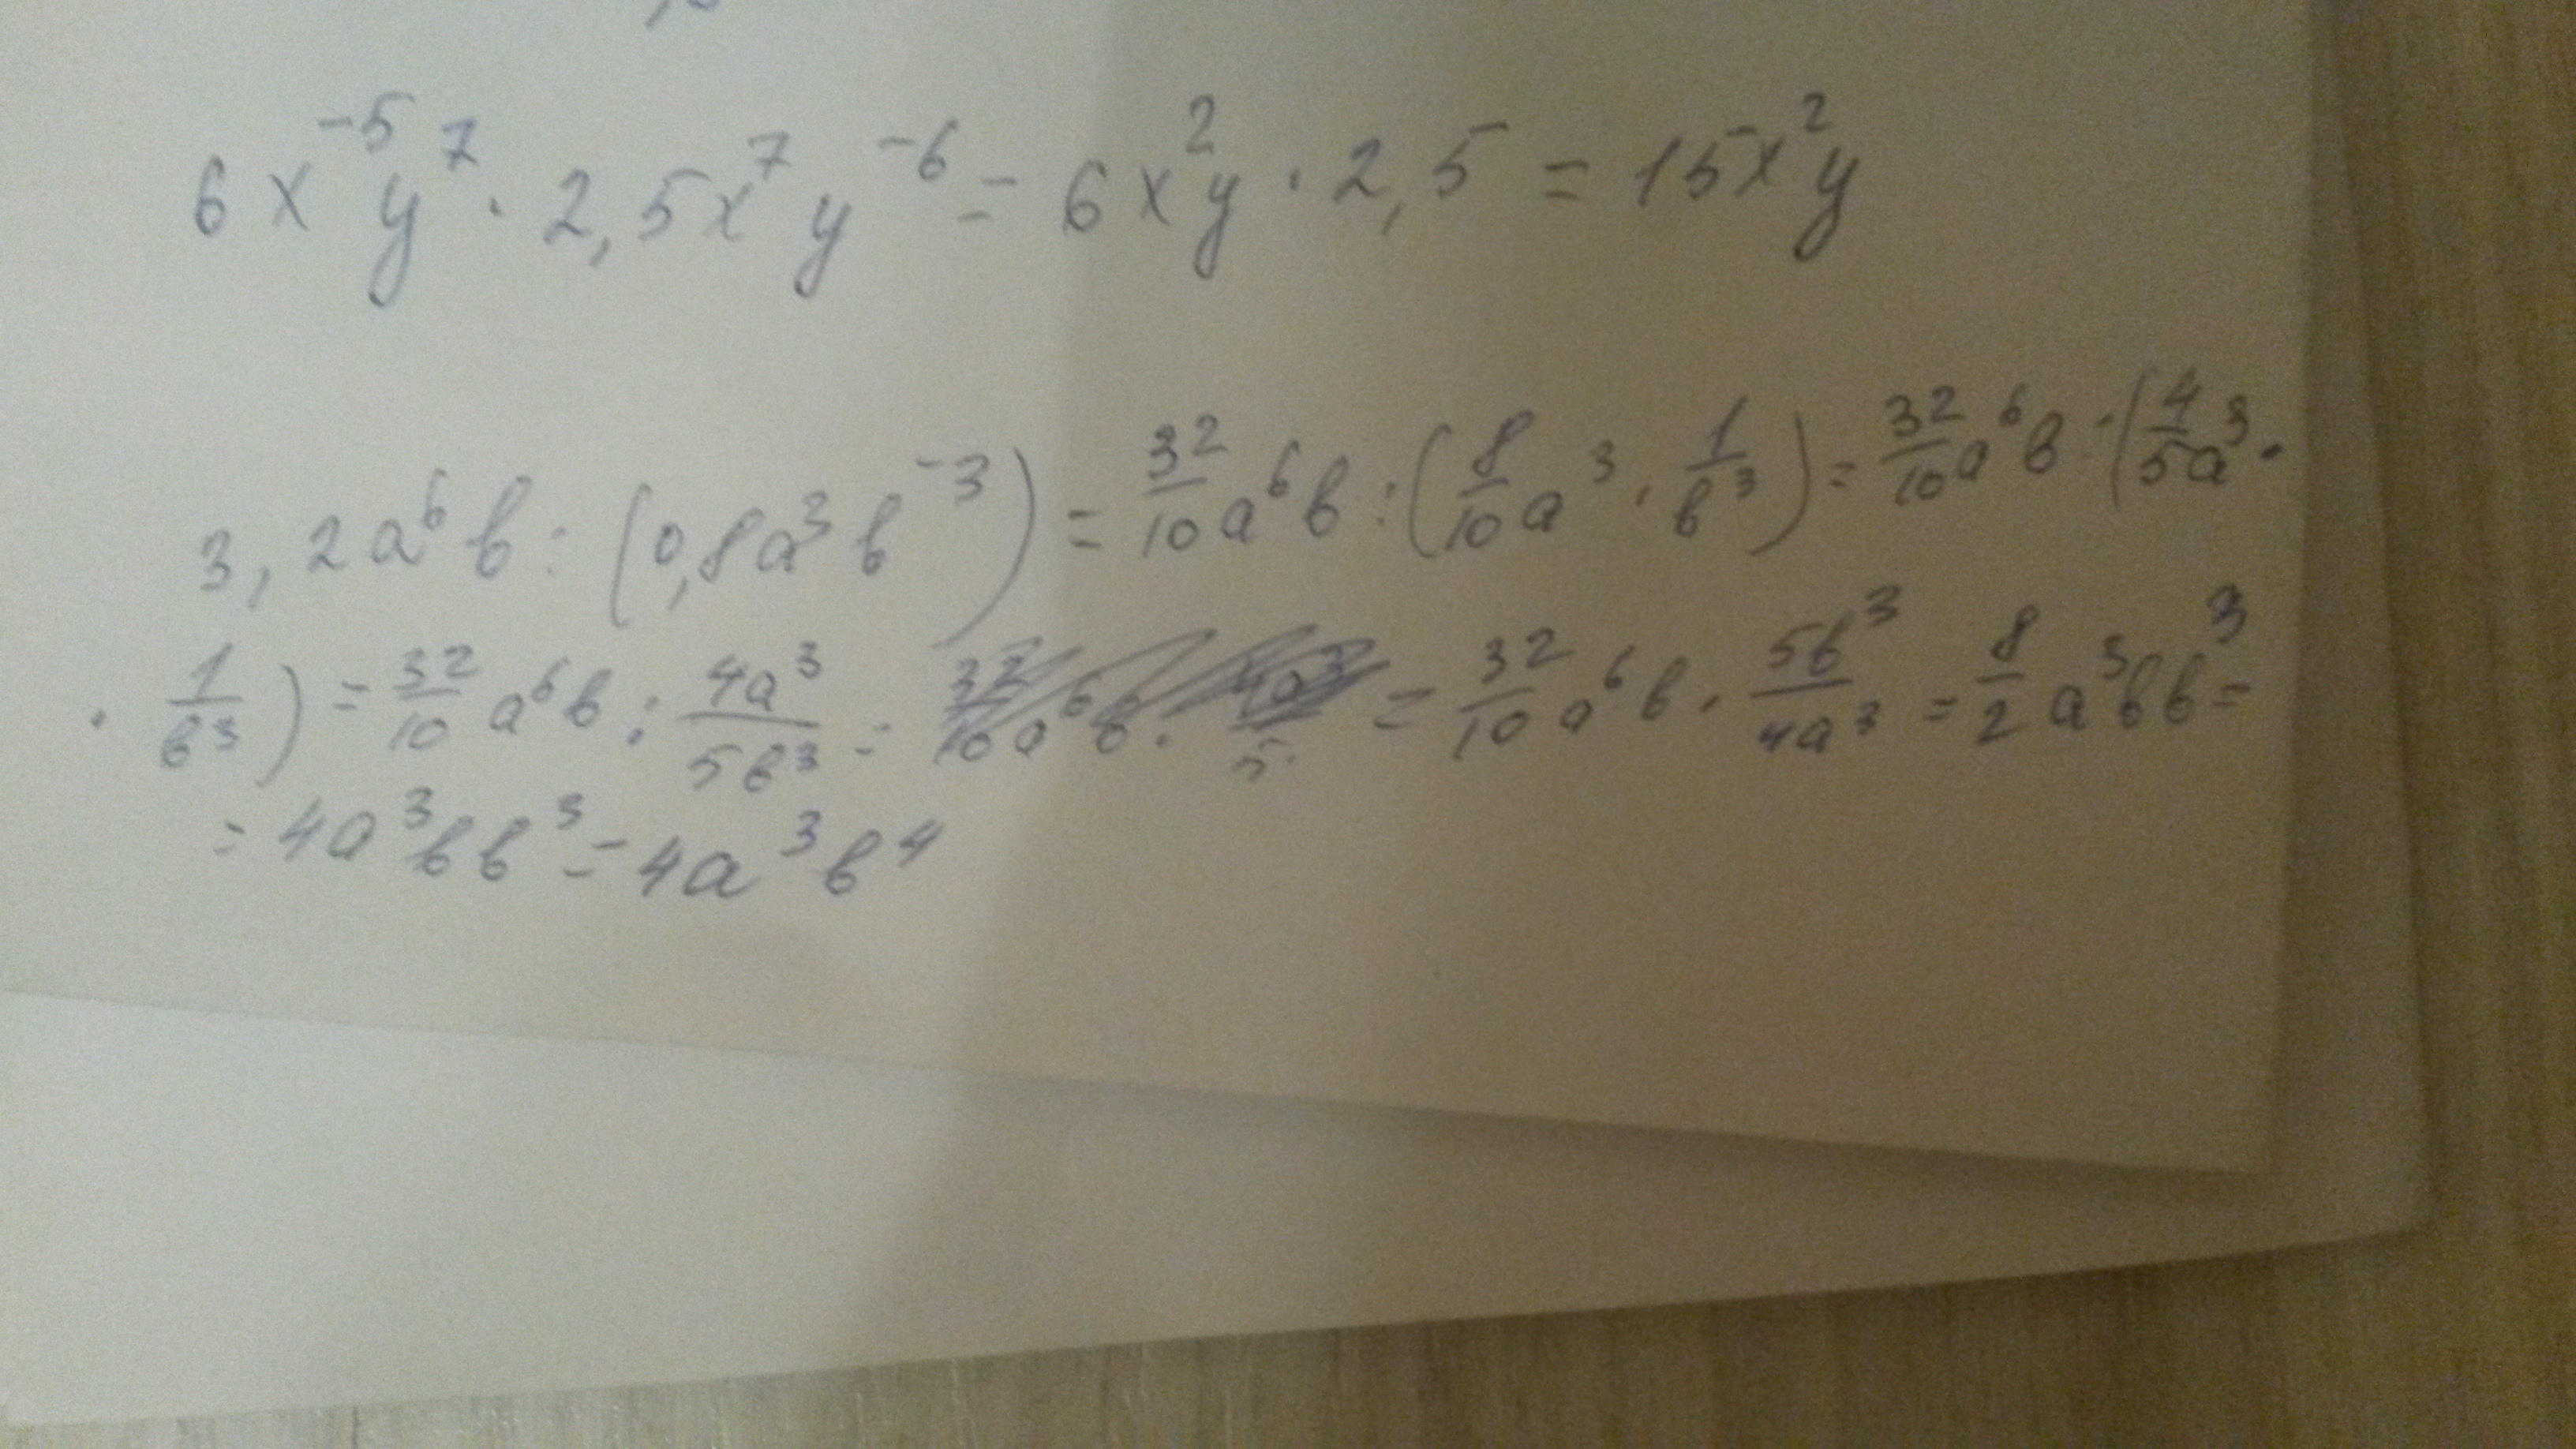 6x⁻⁵y⁷ · 2,5x⁷y⁻⁶ = 6x²y · 2,5 = 15x²y
3,2a⁶b : (0,8a³b⁻³) = 32/10 a⁶b : (8/10 a³ · 1/b³) = 32/10 a⁶b : (4/5 a³ ·
· 1/b³) = 32/10 a⁶b : 4a³/5b³ = = 32/10 a⁶b · 5b³/4a³ = 8/2 a³bb³ =
= 4a³bb³ = 4a³b⁴